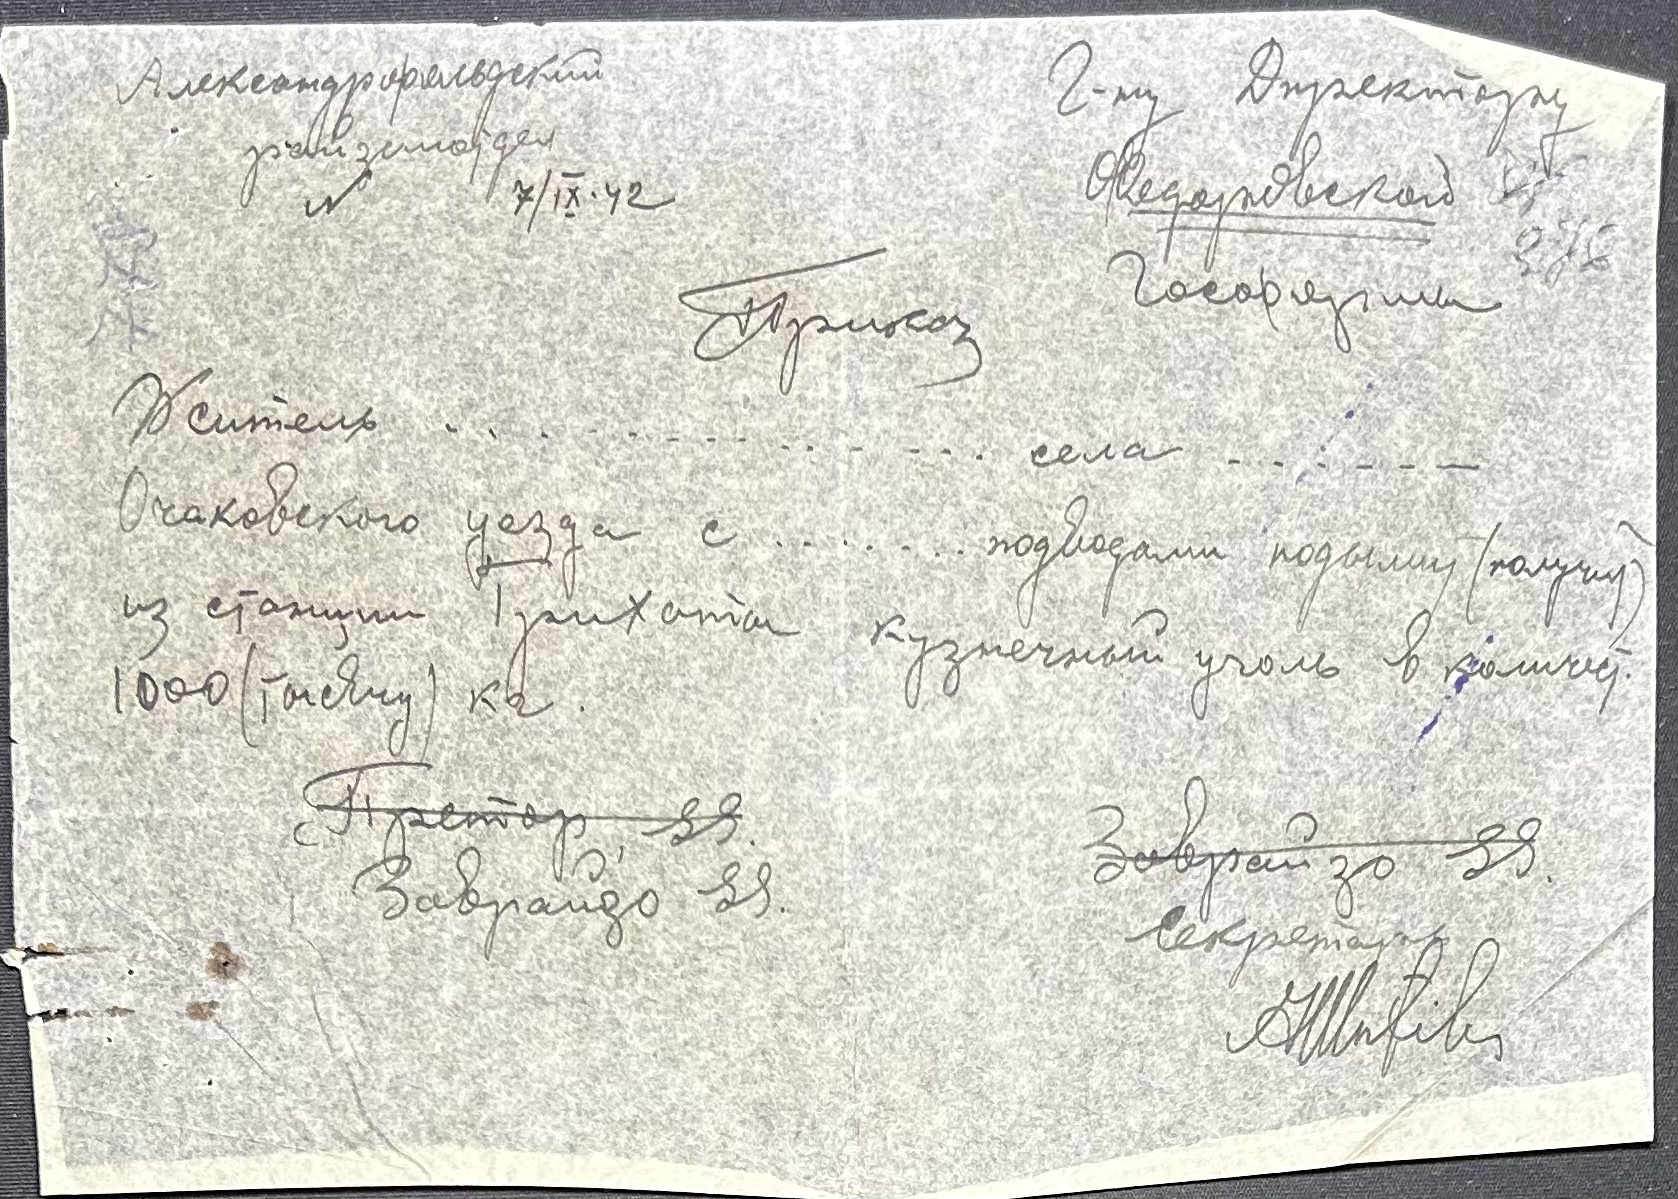 Александрфельдский
райземотдел
№ 7/IX-42
Г-ну Директору
Федоровской
Госфермы
Приказ
Житель . . . . . . . . . . . . . . . села . . . . . . .
Очаковского уезда с . . . . . . . подводами подымит (получит)
из станции Трихаты кузнечный уголь в количест.
1000 (тысячу) кг.
Претор, SS.
Заврайзо SS.
Заврайзо SS.
Секретарь